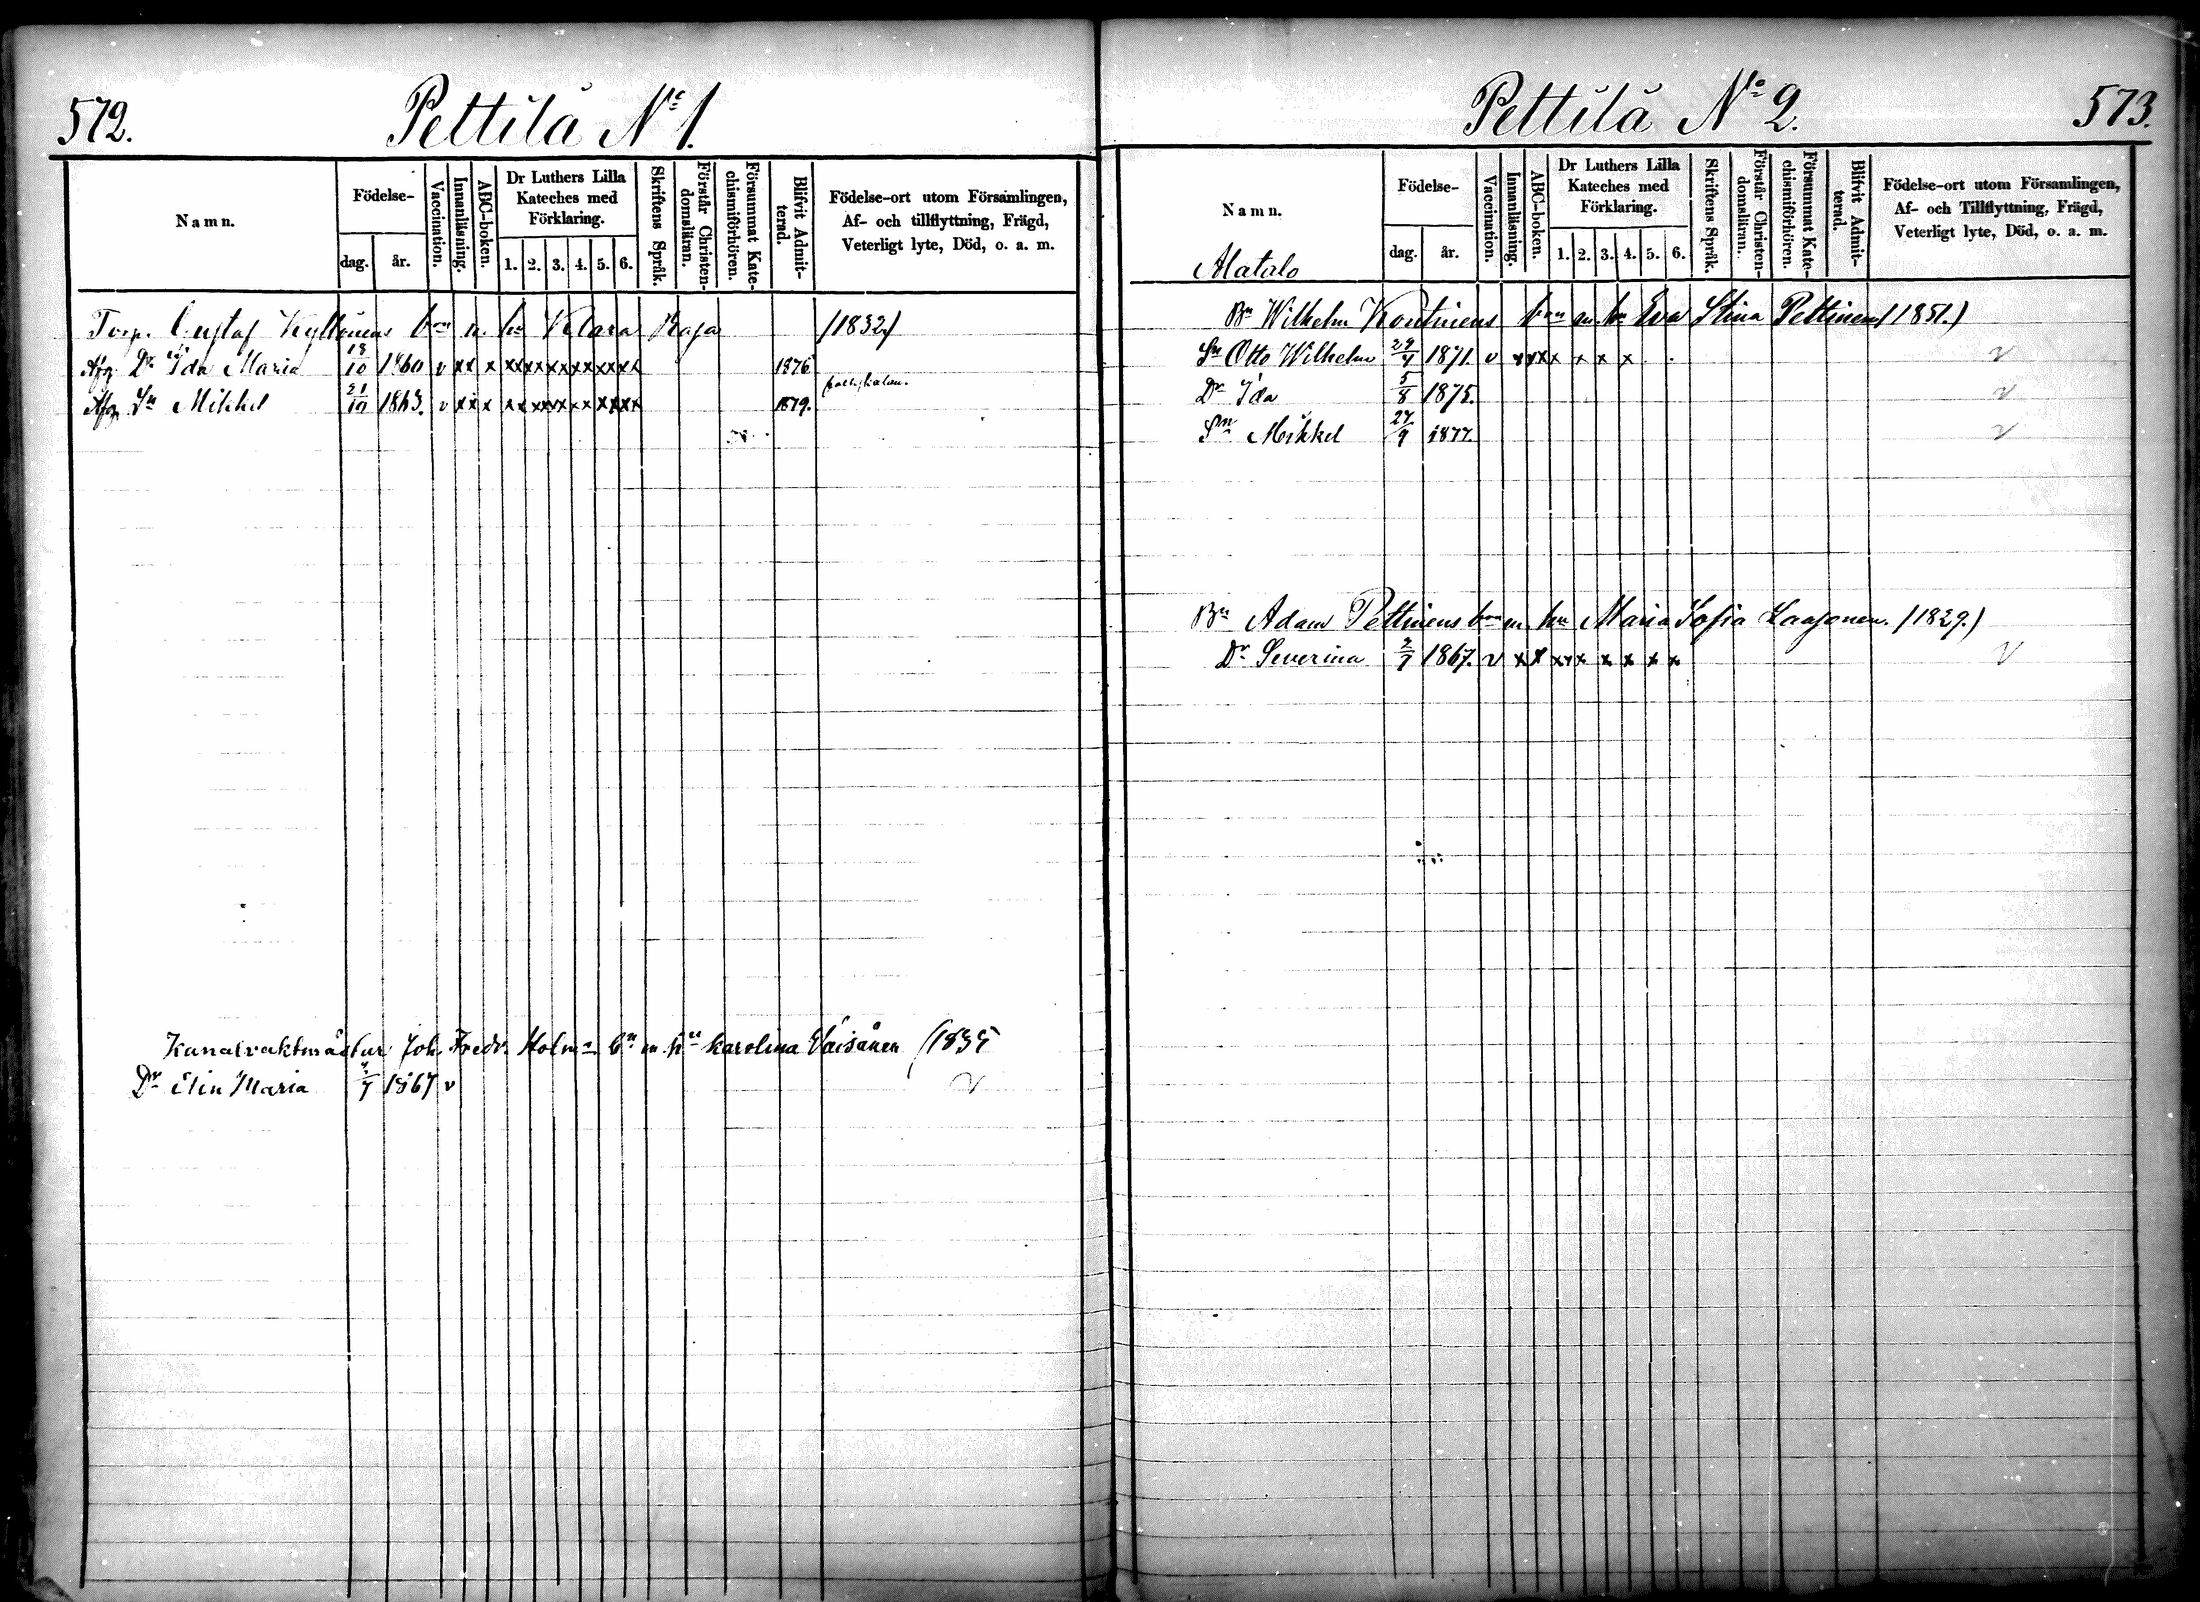 572.
Pettilä No 1.
Namn.
Födelse-
dag.
år.
Vaccination.
Innanläsning.
ABC-boken.
Dr Luthers Lilla Kateches med Förklaring.
1. 2. 3. 4. 5. 6.
Skriftens Språk.
Förstår Christen-domsläran.
Försummat Kate-chismiförhören.
Blifvit Admit-terad.
Födelse-ort utom Församlingen,
Af- och tillflyttning, Frägd,
Veterligt lyte, Död, o. a. m.
Torp. Gustaf Kyllönens bn m. hu Klara Kaja (1832)
Afg. Dr Ida Maria 18/10 1860 v xx x xx xx xx xx xx xx 1876
Afg. Sn Mikkel 21/10 1863. v xx x x x xxx x x x xxxx 1879.
Kanalvaktmästar Joh. Fredr. Holm bn m hu Karolina Väisänen (1835
Dr Elin Maria 2/7 1867 v v
Pettilä No 2.
573.
Namn.
Födelse-
dag.
år.
Vaccination.
Innanläsning.
ABC-boken.
Dr Luthers Lilla Kateches med Förklaring.
1. 2. 3. 4. 5. 6.
Skriftens Språk.
Förstår Christen-domsläran.
Försummat Kate-chismiförhören.
Blifvit Admit-terad.
Födelse-ort utom Församlingen,
Af- och Tillflyttning, Frägd,
Veterligt lyte, Död, o. a. m.
Matalo
Bn Wilhelm Kontinens bn m. hu Eva Stina Pettinen (1851.)
Sn Otto Wilhelm 29/4 1871. v x x x x x x x v
Dr Ida 5/8 1875. v
Sn Mikkel 27/9 1877. v
Bn Adam Pettinens bn m hu Maria Sofia Laasonen. (1829.)
Dr Severina 2/7 1867. v x x x x x x x x x v